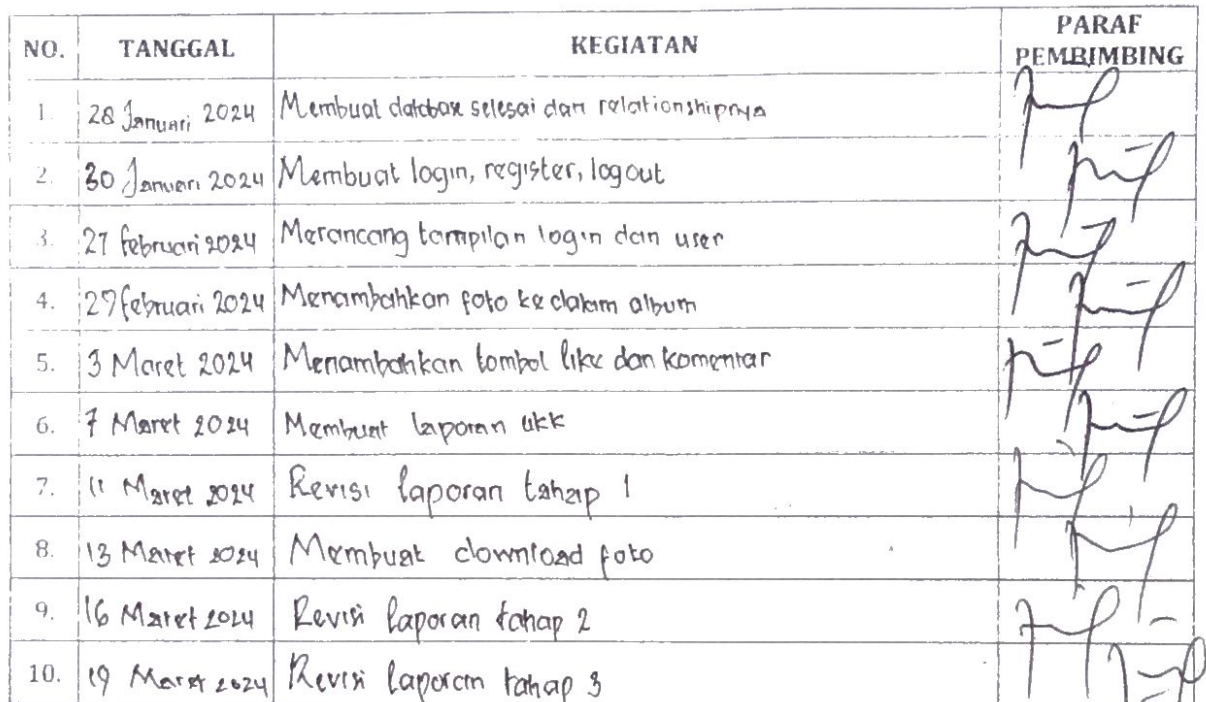 NO. TANGGAL KEGIATAN PARAF PEMBIMBING
1. 28 Januari 2024 Membuat database selesai dan relationshipnya
2. 30 Januari 2024 Membuat login, register, logout
3. 27 februari 2024 Merancang tampilan login dan user
4. 29 februari 2024 Menambahkan foto ke dalam album
5. 3 Maret 2024 Menambahkan tombol like dan komentar
6. 7 Maret 2024 Membuat laporan ukk
7. 11 Maret 2024 Revisi laporan tahap 1
8. 13 Maret 2024 Membuat download foto
9. 16 Maret 2024 Revisi laporan tahap 2
10. 19 Maret 2024 Revisi laporan tahap 3